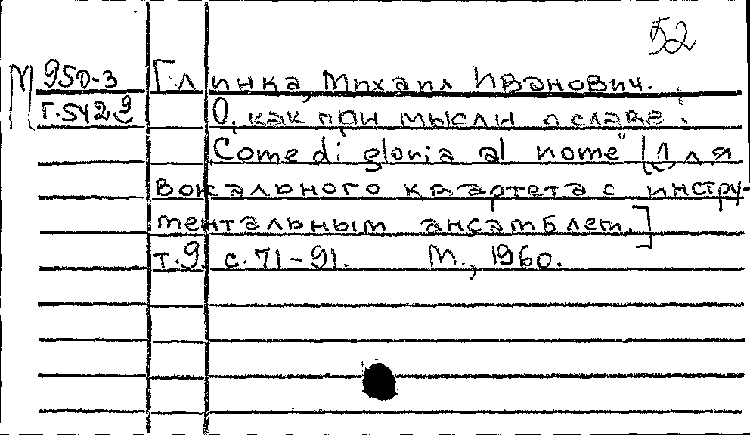 52
М 950-3 Глинка, Михаил Иванович.
Г.542 О, как при мысли о славе.
Come di gloria al nome" [Для
вокального квартета с инстру-
ментальным ансамблем.]
т.9 с.71-91. М., 1960.